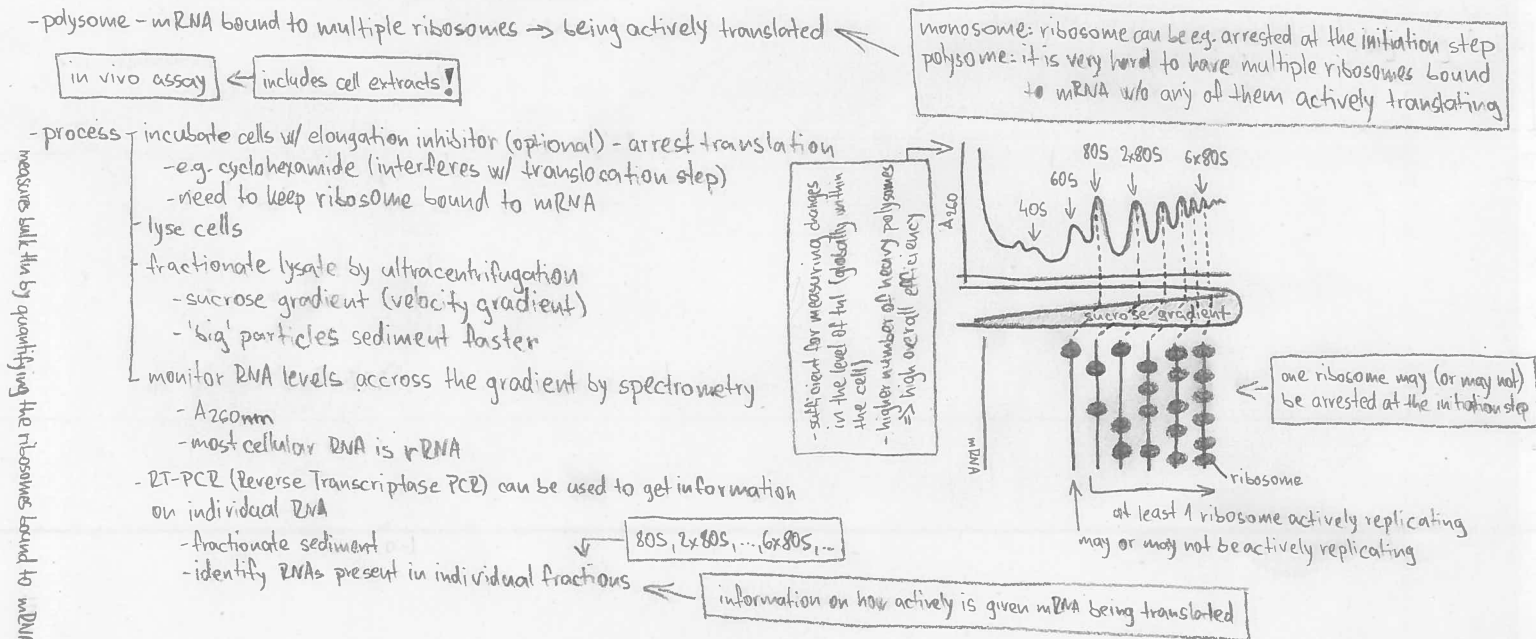 - polysome - mRNA bound to multiple ribosomes → being actively translated
monosome: ribosome can be e.g. arrested at the initiation step
polysome: it is very hard to have multiple ribosomes bound
to mRNA w/o any of them actively translating
in vivo assay
includes cell extracts!
- process - incubate cells w/ elongation inhibitor (optional) - arrest translation
- e.g. cyclohexamide (interferes w/ translocation step)
- need to keep ribosome bound to mRNA
- lyse cells
- fractionate lysate by ultracentrifugation
- sucrose gradient (velocity gradient)
- 'big' particles sediment faster
- monitor RNA levels accross the gradient by spectrometry
- A260nm
- most cellular RNA is rRNA
- RT-PCR (Reverse Transcriptase PCR) can be used to get information
on individual RNA
- fractionate sediment
- identify RNAs present in individual fractions
80S, 2x80S, ..., 6x80S, ...
information on how actively is given mRNA being translated
measures bulk tln by quantifying the ribosomes bound to mRNA
- sufficient for measuring changes
in the level of tnl (globally within
the cell)
- higher number of heavy polysomes
⇒ high overall efficiency
A260
40S
60S
80S
2x80S
6x80S
sucrose gradient
mRNA
ribosome
one ribosome may (or may not)
be arrested at the initiation step
at least 1 ribosome actively replicating
may or may not be actively replicating